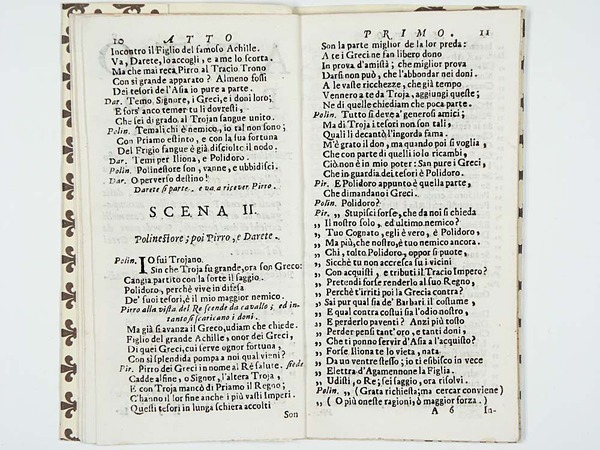 10 ATTO
Incontro il Figlio del famoso Achille.
Va, Darete, lo accogli, e a me lo scorta.
Ma che mai reca Pirro al Tracio Trono
Con sì grande apparato? Almeno fossi
Dei tesori dell'Asia io pure a parte.
Dar. Temo, Signore, i Greci, e i doni loro;
E fors'anco temer tu li dovresti,
Che sei di grado al Trojan sangue unito.
Polin. Temali chi è nemico, io tal non sono;
Con Priamo estinto, e con la sua fortuna
Del Frigio sangue è già disciolto il nodo.
Dar. Temi per Iliona, e Polidoro.
Polin. Polinestore son, vanne, e ubbidisci.
Dar. O perverso destino!
Darete si parte, e va a ricever Pirro.
SCENA II.
Polinestore; poi Pirro, e Darete.
Polin. Io fui Trojano.
Sin che Troja fu grande, ora son Greco:
Cangia partito con la sorte il saggio.
Polidoro, perchè vive in difesa
De' suoi tesori, è il mio maggior nemico.
Pirro alla vista del Re scende da cavallo; ed intanto
si scaricano i doni.
Ma già s'avanza il Greco, udiam che chiede.
Figlio del grande Achille, onor dei Greci,
Di quei Greci, cui serve ognor fortuna,
Con sì splendida pompa a noi qual vieni?
Pir. Pirro dei Greci in nome al Rè salute. siede
Cadde alfine, o Signor, l'altera Troja,
E con Troja mancò di Priamo il Regno;
C'hanno il lor fine anche i più vasti Imperi.
Questi tesori in lunga schiera accolti
Son
PRIMO. 11
Son la parte miglior de la lor preda:
A te i Greci ne fan libero dono
In prova d'amistà; che miglior prova
Darsi non può, che l'abbondar nei doni.
A le vaste ricchezze, che già tempo
Vennero a te da Troja, aggiungi queste;
Ne di quelle chiediam che poca parte.
Polin. Tutto si deve a' generosi amici;
Ma di Troja i tesori non son tali,
Quali li decantò l'ingorda fama.
M'è grato il don, ma quando poi si voglia,
Che con parte di quelli io lo ricambi,
Ciò non è in mio poter: San pure i Greci,
Che in guardia dei tesori è Polidoro.
Pir. E Polidoro appunto è quella parte,
Che dimandano i Greci.
Polin. Polidoro?
Pir. „ Stupisci forse, che da noi si chieda
„ Il nostro solo, ed ultimo nemico?
„ Tuo Cognato, egli è vero, è Polidoro,
„ Ma più, che nostro, è tuo nemico ancora.
„ Chi, tolto Polidoro, oppor si puote,
„ Sicchè tu non accresca su i vicini
„ Con acquisti, e tributi il Tracio Impero?
„ Pretendi forse renderlo al suo Regno,
„ Perchè t'irriti poi la Grecia contra?
„ Sai pur qual sia de' Barbari il costume,
„ E qual contra costui sia l'odio nostro,
„ E perderlo paventi? Anzi più tosto
„ Perder pensi tant'oro, e tanti doni,
„ Che ti ponno servir d'Asia a l'acquisto?
„ Forse Iliona te lo vieta, nata
„ Da un ventre stesso; io ti esibisco in vece
„ Elettra d'Agamennone la Figlia.
„ Udisti, o Re; sei saggio, ora risolvi.
Polin. „ (Grata richiesta; ma cercar conviene)
„ (O più oneste ragioni, ò maggior forza.)
A 6 In-